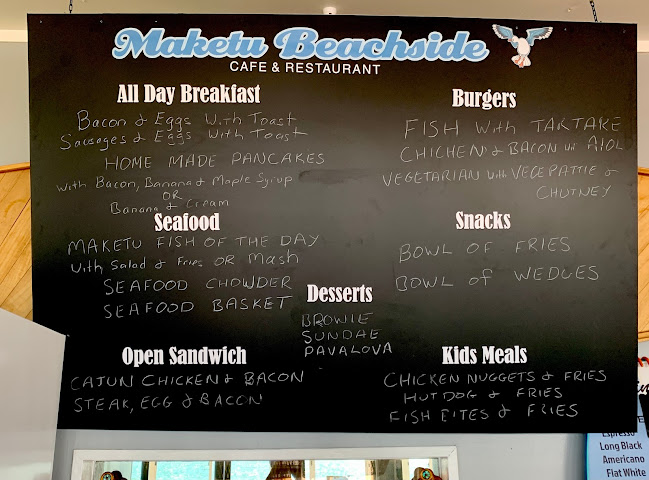 Maketu Beachside
CAFE & RESTAURANT
All Day Breakfast
Bacon & Eggs With Toast
Sausages & Eggs With Toast
HOME MADE PANCAKES
With Bacon, Banana & Maple Syrup
OR
Banana & Cream
Seafood
MAKETU FISH OF THE DAY
With Salad & Fries OR Mash
SEAFOOD CHOWDER
SEAFOOD BASKET
Open Sandwich
CAJUN CHICKEN & BACON
STEAK, EGG & BACON
Desserts
BROWIE
SUNDAE
PAVALOVA
Burgers
FISH with TARTARE
CHICHEN & BACON with AIOL
VEGETARIAN with VEGE PATTIE &
CHUTNEY
Snacks
BOWL OF FRIES
BOWL of WEDGES
Kids Meals
CHICKEN NUGGETS & FRIES
HUT DOG & FRIES
FISH BITES & FRIES
Espresso
Long Black
Americano
Flat White